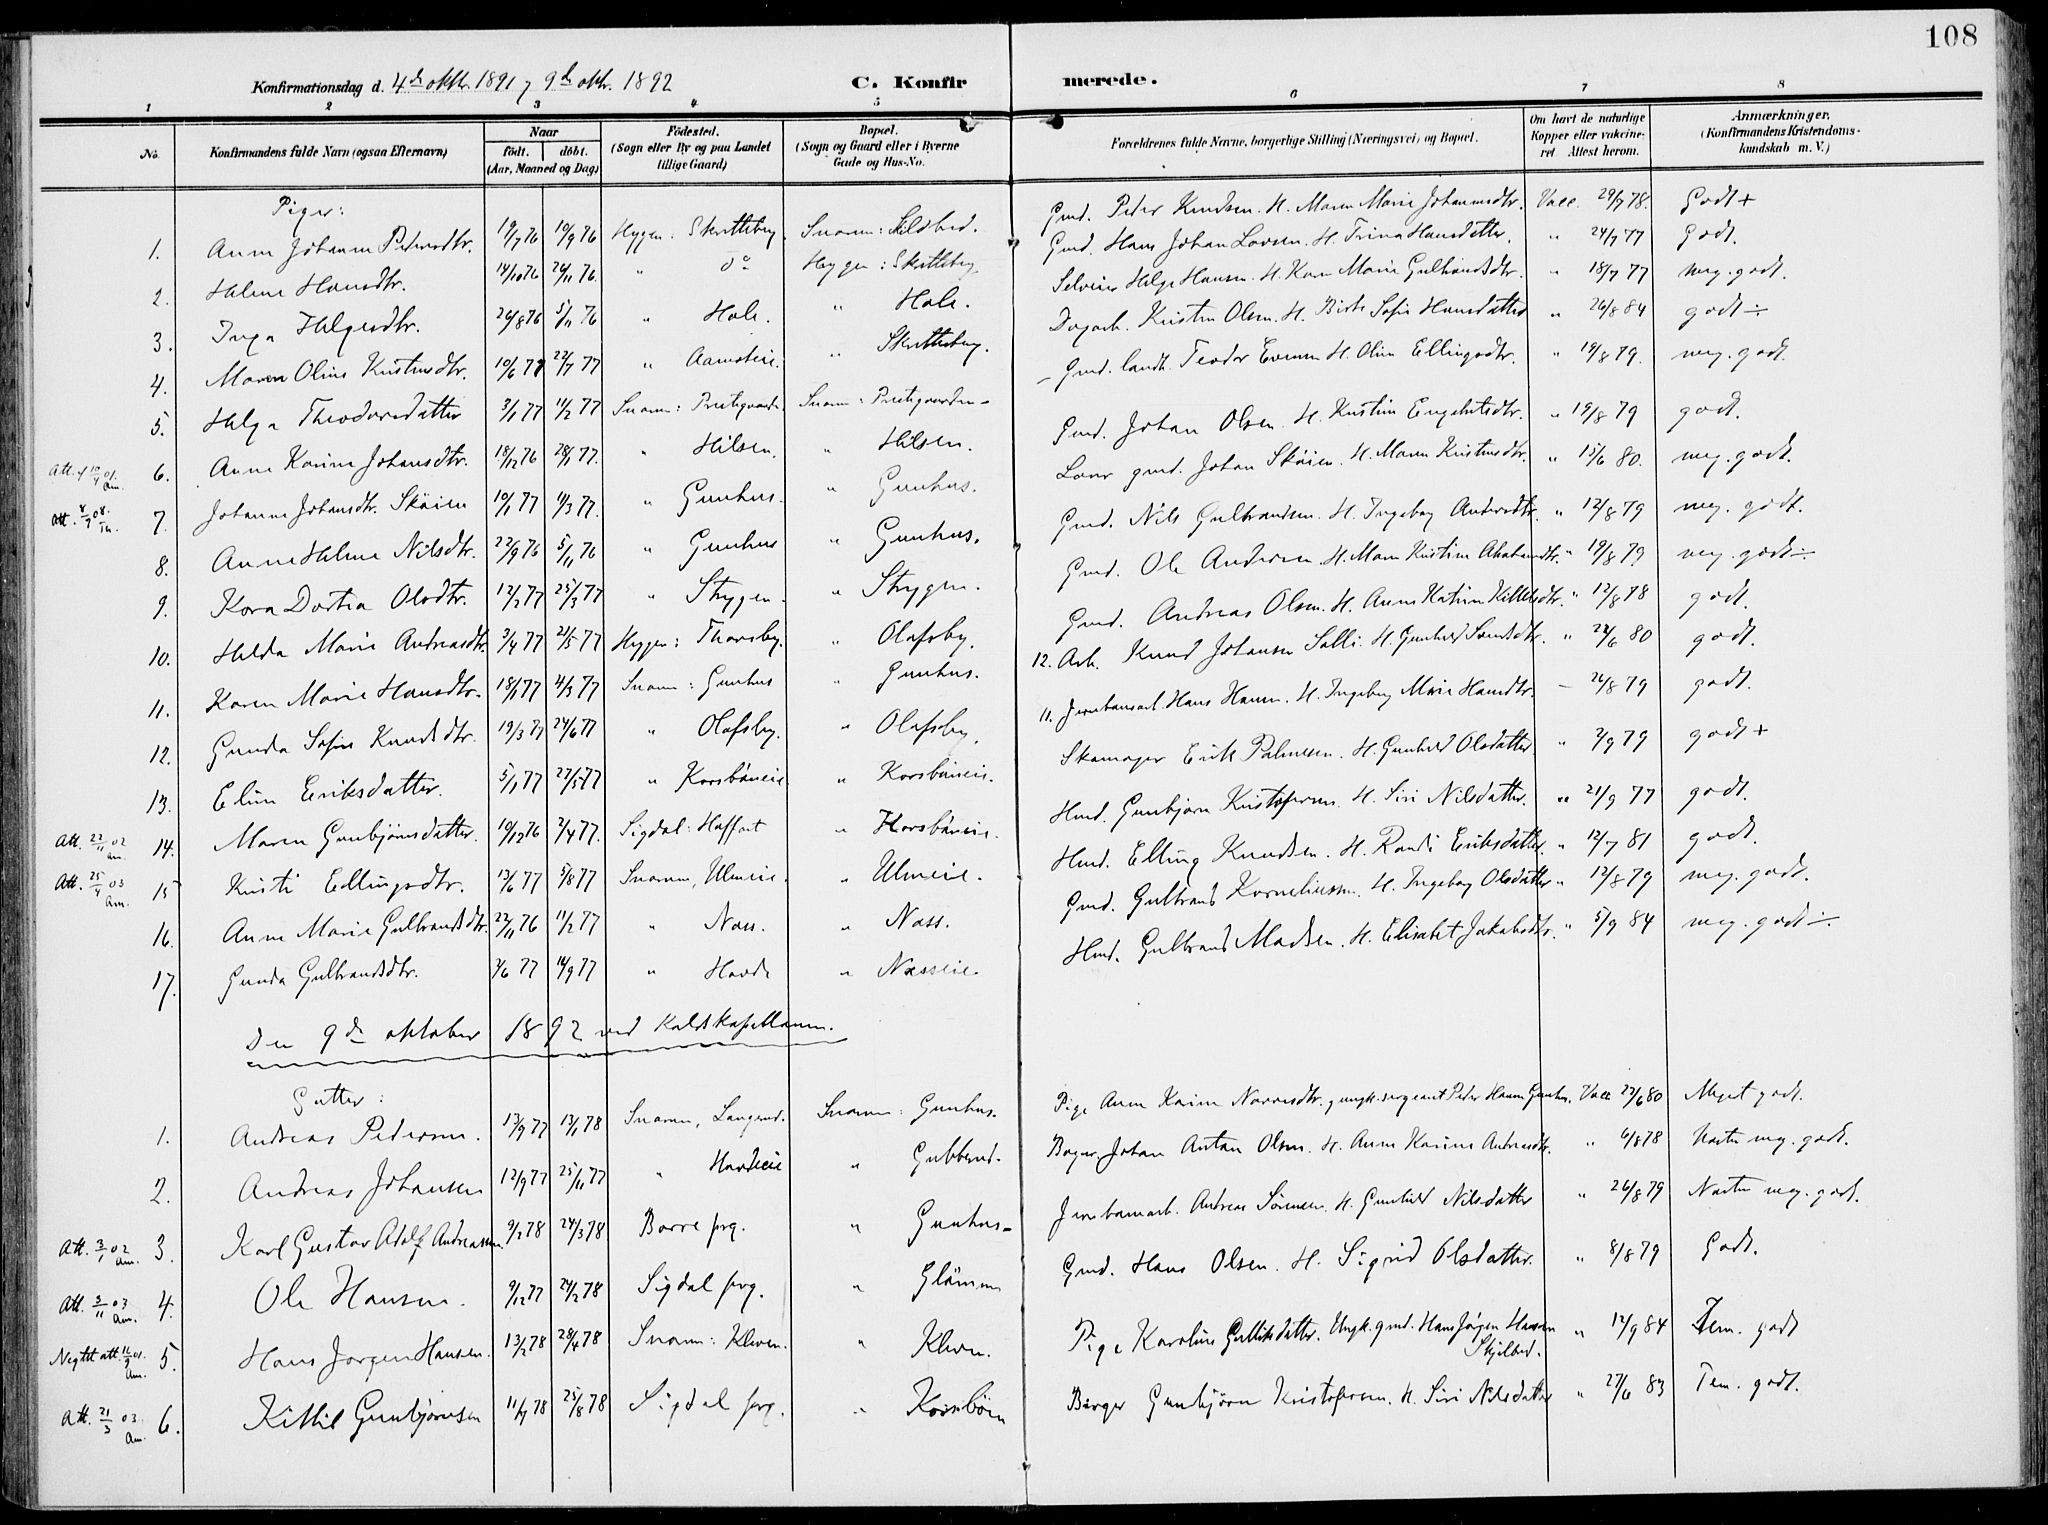 108
Konfirmationsdag d. 4de oktbr. 1891, 9de oktbr. 1892 C. Konfirmerede.
1 2 3 4 5 6 7 8
No. Konfirmandens fulde Navn (ogsaa Efternavn) Naar födt. döbt. (Aar, Maaned og Dag) Födested. (Sogn eller By og paa Landet tillige Gaard) Bopæl. (Sogn og Gaard eller i Byerne Gade og Hus-No. Forældrenes fulde Navne, borgerlige Stilling (Næringsvei) og Bopæl. Om havt de naturlige Kopper eller vakcineret. Attest herom. Anmærkninger, (Konfirmandens Kristendomskundskab m. V.)
Piger:
1. Anne Johanne Pedersdtr. 19/7 76 10/9 76 Hygen: Skretteberg. Snarum: Skildbred. Gmd. Peder Knudsen. H. Maren Marie Johannesdtr. Vacc. 29/7 78. Godt +
2. Helene Hansdtr. 14/10 76 26/11 76. " do Hygen: Skretteberg. Gmd. Hans Johan Larsen. H. Trina Hansdatter. " 24/7 77 Godt.
3. Inga Helgesdtr. 26/8 76 5/11 76 " Hole. " Hole. Selveier Helge Hansen. H. Karen Marie Gulbrandsdtr. " 18/7 77 meg. godt.
4. Maren Oline Kristensdtr. 10/6 77 22/7 77 " Aamoteie. " Skretteberg. Dagarb. Kristen Olsen. H. Birte Sofie Hansdatter " 26/8 84 godt ÷
5. Helga Theodorsdatter 3/1 77 11/2 77 Snarum: Prestgaarden Snarum: Prestgaarden – Gmd. landh. Teodor Evensen H. Oline Ellingsdtr. " 19/8 79. meg. godt.
Att. 10/4 01. Am. 6. Anne Karine Johansdtr. 18/12 76 28/1 77. " Hilsen. " Hilsen. Gmd. Johan Olsen. H. Kristine Engebretsdtr. " 19/8 79 godt.
Att. 8/9 08. Th. 7. Johanne Johansdtr. Skøien 10/1 77 11/3 77. " Gunhus. " Gunhus. gmd. Johan Skøien. H. Maren Kristensdtr. " 15/6 80. meg. godt.
8. Anne Helene Nilsdtr. 22/9 76 5/11 76 " Gunhus " Gunhus. Gmd. Nils Gulbrandsen. H. Ingeborg Andersdtr. " 12/8 79 meg. godt.
9. Kara Dortea Olsdtr. 12/2 77 25/3 77 " Strygen. " Strygen. Gmd. Ole Andersen. H. Maren Kristine Abrahamsdtr. " 19/8 79 meg. godt ÷
10. Helda Marie Andreasdtr. 3/4 77 21/5 77 Hygen: Thorsby. " Olafsby. Gmd. Andreas Olsen. H. Anne Katrine Kittelsdtr. " 12/8 78 godt.
11. Karen Marie Hansdtr. 18/1 77 4/3 77 Snarum: Gunhus " Gunhus. 12. Arb. Knud Johansen H. Gunhild " 22/6 80 godt.
12. Gunda Sofie Knudsdtr. 19/3 77 24/6 77 " Olafsby. " Olafsby. 11. Jernbanearb. Hans Hansen. H. Ingeborg Marie Hansdtr. – 26/8 79 godt.
13. Eline Eriksdatter. 5/1 77 27/5 77 " Korsbøneie. " Korsbøneie. Skomager Erik Palmesen. H. Gunhild Olsdatter. " 2/9 79 godt +
Att. 22/11 02 Am. 14. Maren Gunbjørnsdatter. 19/12 76 2/4 77. Sigdal: " Korsbøneie. Hmd. Gunbjørn Kristofersen. H. Siri Nilsdatter. " 21/9 77 godt.
Att. 25/4 03 Am. 15 Kristi Ellingsdtr. 13/6 77 5/8 77 Snarum, Ulmeie. " Ulmeie. Hmd. Elling Knudsen. H. Randi Eriksdatter. " 12/7 81 godt.
16. Anne Marie Gulbrandsdtr. 22/11 76 11/2 77 " Næss. " Næss. Gmd. Gulbrand Korneliussen. H. Ingeborg Olsdatter " 12/8 79 meg. godt.
17. Gunda Gulbrandsdtr. 7/6 77 16/9 77 " Hovde " Næsseie. Hmd. Gulbrand Madsen. H. Elisabet Jakobsdtr. " 5/9 84 meg. godt ÷.
Den 9de oktober 1892 ved Kaldskapellanen.
Gutter:
1. Andreas Pedersen. 13/9 77 13/1 78 Snarum, Langerud. Snarum: Gunhus. Pige Anne Karine Narvesdtr. ungk. sergeant Peder Hansen Gunhus. Vacc 22/6 80 Meget godt.
2. Andreas Johansen 12/9 77 25/11 77 " Hovdeeie " Gubberud. Bager. Johan Anton Olsen. H. Anne Karine Andreasdtr. " 6/8 78 Næsten meg. godt.
Att. 3/1 02 Am. 3. Karl Gustav Adolf Andreassen. 9/2 78 24/3 78 Borre prg. " Gunhus – Jernbanearb. Andreas Sørensen. H. Gunhild Nilsdatter " 26/8 79 Næsten meg. godt.
Att. 3/11 03 Am. 4. Ole Hansen. 9/12 77 24/2 78 Sigdal prg. " Glømmen Gmd. Hans Olsen. H. Sigrid Olsdatter. " 8/8 79 Godt.
Negtet att. 16/9 01. Am. 5. Hans Jørgen Hansen. 13/2 78 28/4 78 Snarum: Kleven. " Kleven. Pige Karoline Gulliksdatter. Ungk. gmd. Hans Jørgen Hansen Skjelbred. " 12/9 84 Tem. godt
Att. 21/3 03. Am. 6. Kittil Gunbjørnsen 11/7 78 25/8 78 Sigdal prg. " Korsbøen Bürger Gunbjørn Kristofersen. H. Siri Nilsdatter " 27/6 83 Tem. godt.